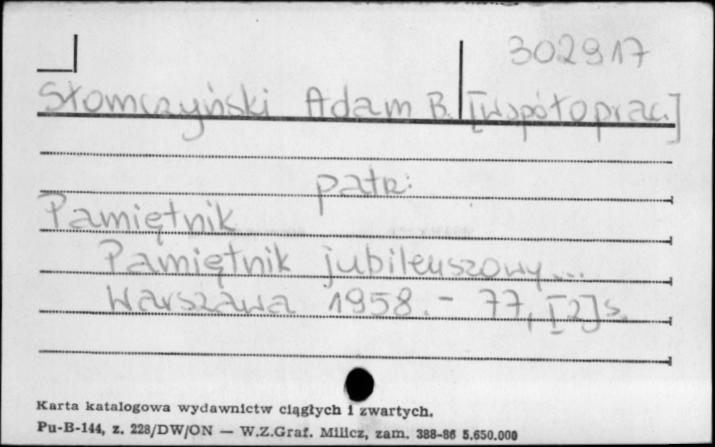 302917
Słomczyński Adam B. [Współoprac.]
patrz:
Pamiętnik
Pamiętnik jubileuszowy...
Warszawa 1958. - 77, [2] s.
Karta katalogowa wydawnictw ciągłych i zwartych.
Pu-B-144, z. 228/DW/ON — W.Z.Graf. Milicz, zam. 388-86 5.650.000